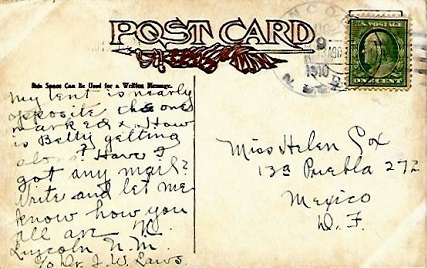 POST CARD
U.S. POSTAGE
ONE CENT
1910
This Space Can Be Used for a Written Message.
My tent is nearly
opposite the one
marked x. How
is Betty getting
along? Have I
got any mail?
Write and let me
know how you
all are.
Lincoln N.M.
c/o Dr. J. W. Laws.
Miss Helen Cox
13a Puebla 272
Mexico
D.F.